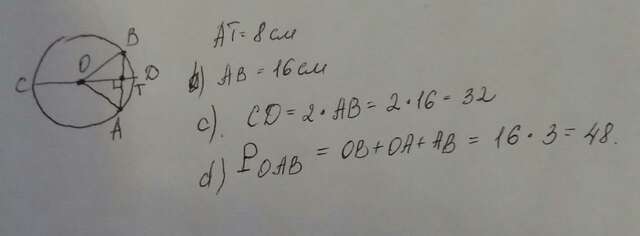 B
O
D
C
T
A
AT = 8 см
b) AB = 16 см
c). CD = 2 · AB = 2 · 16 = 32
d) P OAB = OB + OA + AB = 16 · 3 = 48.